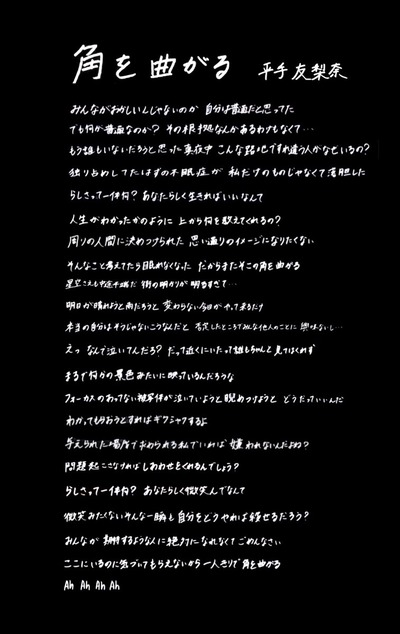 角を曲がる 平手友梨奈
みんなおかしいんじゃないのか 自分は普通だと思ってた
でも何が普通なのか? その根拠なんかあるわけもなくて…
もう誰もいないだろうと思った真夜中 こんな路地ですれ違う人がなぜいるの?
独り占めしてたはずの不眠症が 私だけのものじゃなくて落胆した
らしさって一体何? あなたらしく生きればいいなんて
人生がわかったかのように 上から何を教えてくれるの?
周りの人間に決めつけられた 思い通りのイメージになりたくない
そんなこと考えてたら眠れなくなった だからまたそこの角を曲がる
星空さえも中途半端だ 街の明かりが明るすぎて…
明日が晴れようと雨だろうと 変わらない今日がやって来るだけ
本当の自分はそうじゃない こうなんだと 否定したところで みんな他人のことに興味ないし…
えっ なんで泣いてんだろ? だって近くにいたって誰もちゃんと見てはくれず
まるで何かの景色みたいに映っているんだろうな
フォーカスのあってない被写体が泣いていようと睨めつけようと どうだっていいんだ
わかってもらおうとすればギクシャクするよ
与えられた場所で求められる私でいれば 嫌われないんだよね?
問題起こさなければ しあわせをくれるんでしょう?
らしさって一体何? あなたらしく微笑んでなんて
微笑みたくない そんな一瞬も自分をどうやれば殺せるだろう?
みんなが期待するような人に 絶対になれなくてごめんなさい
ここにいるのに気づいてもらえないから 一人きりで角を曲がる
Ah Ah Ah Ah